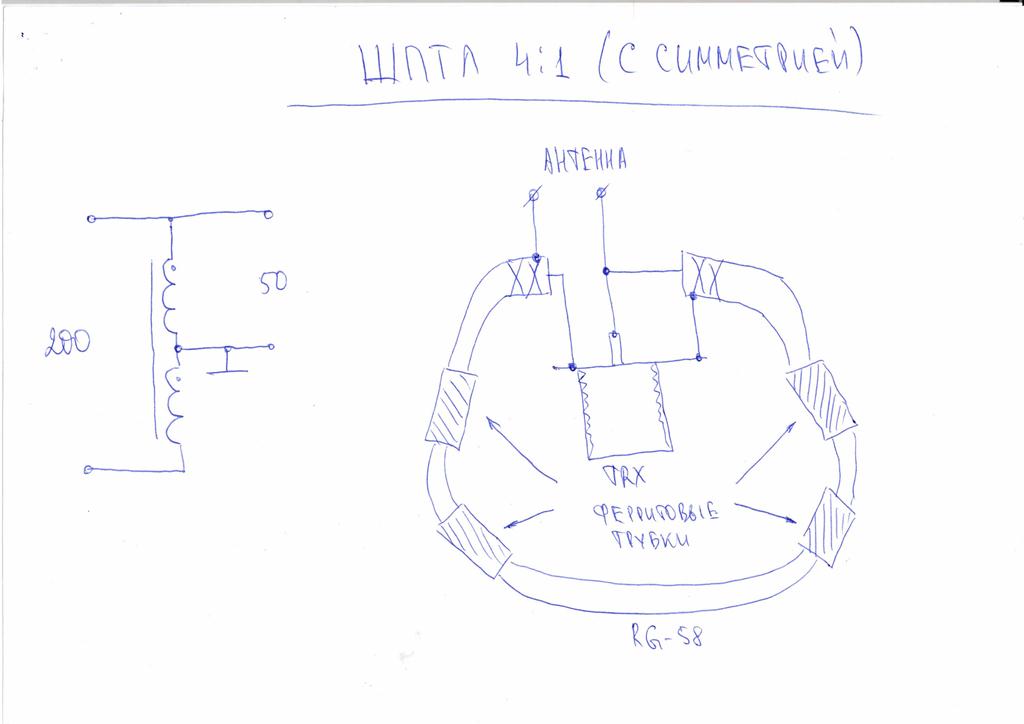 ШПТЛ 4:1 (С СИММЕТРИЕЙ)
АНТЕННА
50
200
TRX
ФЕРРИТОВЫЕ
ТРУБКИ
RG-58